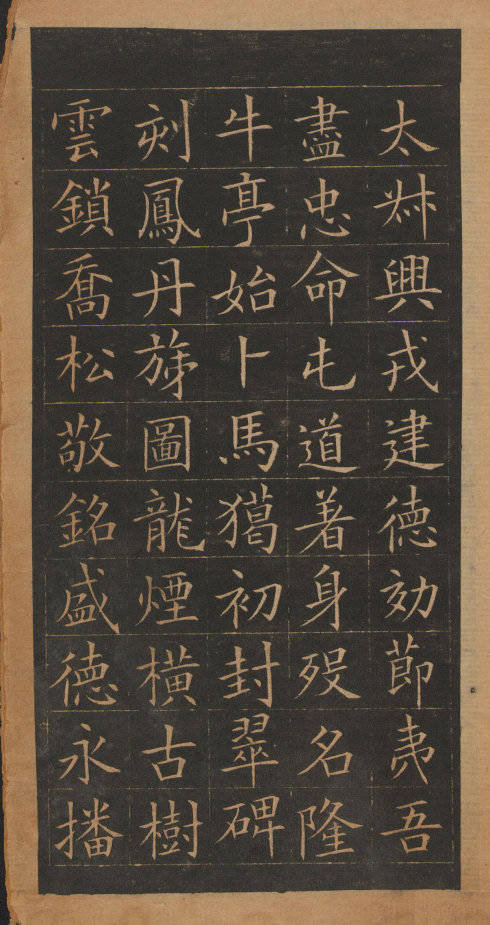 太叔興戎建德効節夷吾
盡忠命屯道着身歿名隆
牛亭始卜馬獦初封翠碑
刻鳳丹旐圖龍煙橫古樹
雲鎖喬松敬銘盛德永播